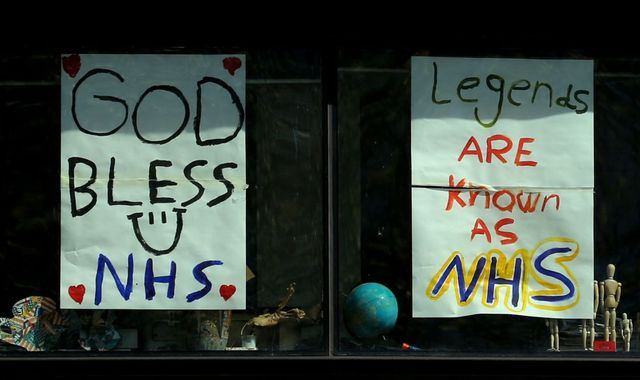 GOD
BLESS
NHS
Legends
ARE
Known
AS
NHS